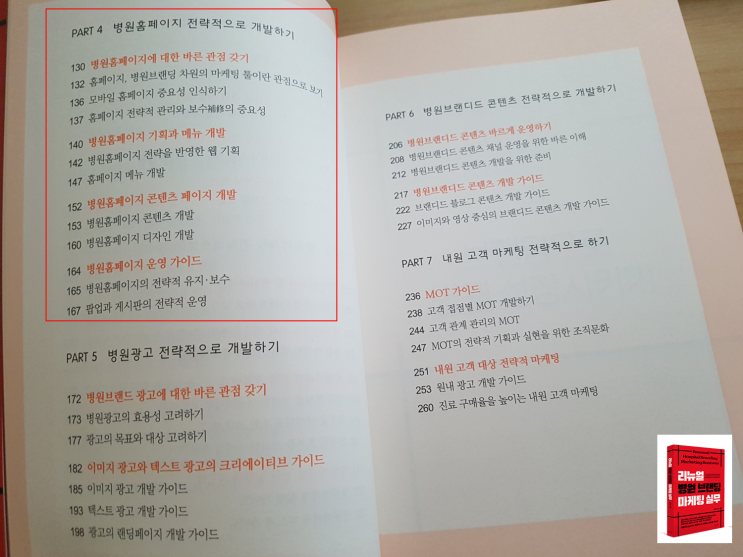 PART 4 병원홈페이지 전략적으로 개발하기
130 병원홈페이지에 대한 바른 관점 갖기
132 홈페이지, 병원브랜딩 차원의 마케팅 툴이란 관점으로 보기
136 모바일 홈페이지 중요성 인식하기
137 홈페이지 전략적 관리와 보수補修의 중요성
140 병원홈페이지 기획과 메뉴 개발
142 병원홈페이지 전략을 반영한 웹 기획
147 홈페이지 메뉴 개발
152 병원홈페이지 콘텐츠 페이지 개발
153 병원홈페이지 콘텐츠 개발
160 병원홈페이지 디자인 개발
164 병원홈페이지 운영 가이드
165 병원홈페이지의 전략적 유지·보수
167 팝업과 게시판의 전략적 운영
PART 5 병원광고 전략적으로 개발하기
172 병원브랜드 광고에 대한 바른 관점 갖기
173 병원광고의 효용성 고려하기
177 광고의 목표와 대상 고려하기
182 이미지 광고와 텍스트 광고의 크리에이티브 가이드
185 이미지 광고 개발 가이드
193 텍스트 광고 개발 가이드
198 광고의 랜딩페이지 개발 가이드
PART 6 병원브랜디드 콘텐츠 전략적으로 개발하기
206 병원브랜디드 콘텐츠 바르게 운영하기
208 병원브랜디드 콘텐츠 채널 운영을 위한 바른 이해
212 병원브랜디드 콘텐츠 개발을 위한 준비
217 병원브랜디드 콘텐츠 개발 가이드
222 브랜디드 블로그 콘텐츠 개발 가이드
227 이미지와 영상 중심의 브랜디드 콘텐츠 개발 가이드
PART 7 내원 고객 마케팅 전략적으로 하기
236 MOT 가이드
238 고객 접점별 MOT 개발하기
244 고객 관계 관리의 MOT
247 MOT의 전략적 기획과 실현을 위한 조직문화
251 내원 고객 대상 전략적 마케팅
253 원내 광고 개발 가이드
260 진료 구매율을 높이는 내원 고객 마케팅
리뉴얼
병원 브랜딩
마케팅 실무